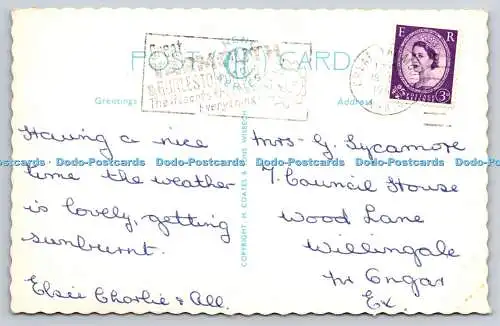 POST CARD
Greetings
Address
E R
3D
Great
The Resort
Everything
Having a nice
time the weather
is lovely, getting
sunburnt.
Elsie Charlie & All.
COPYRIGHT, H. COATES & WISBECH
Mrs. G. Sycamore
7. Council House
Wood Lane
Willingale
Nr Ongar
Ex.
Dodo-Postcards Dodo-Postcards Dodo-Postcards Dodo-Postcards Dodo-Postcards Dodo-Postcards